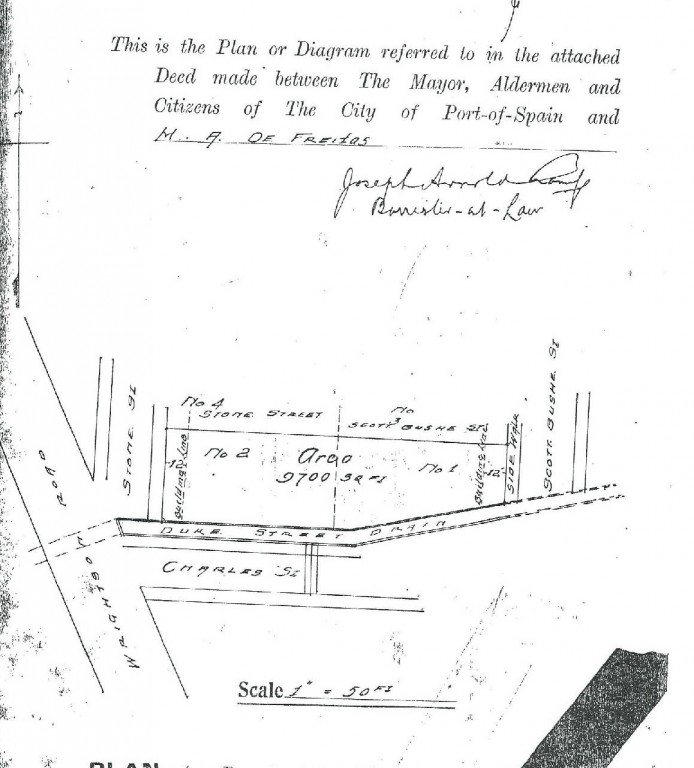 This is the Plan or Diagram referred to in the attached
Deed made between The Mayor, Aldermen and
Citizens of The City of Port-of-Spain and
M. A. DE FREITAS
Joseph Arnold
Barrister-at-Law
No 4
STONE STREET
No
3
SCOTT BUSHE ST
STONE ST
SCOTT BUSHE ST
No 2
Area
9700 SQ FT
No 1
12
Building Line
Building Line
12
SIDE WALK
DUKE STREET DRAIN
CHARLES ST
WRIGHTSON ROAD
Scale 1" = 50 FT
PLAN